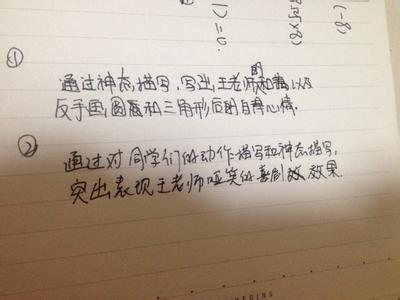 (-8)
1) = 0.
①
通过神态描写,写出王老师的和蔼,以及
反手画圆商和三角形后的自得心情.
②
通过对同学们的动作描写和神态描写,
突出表现王老师哑笑的喜剧效果.